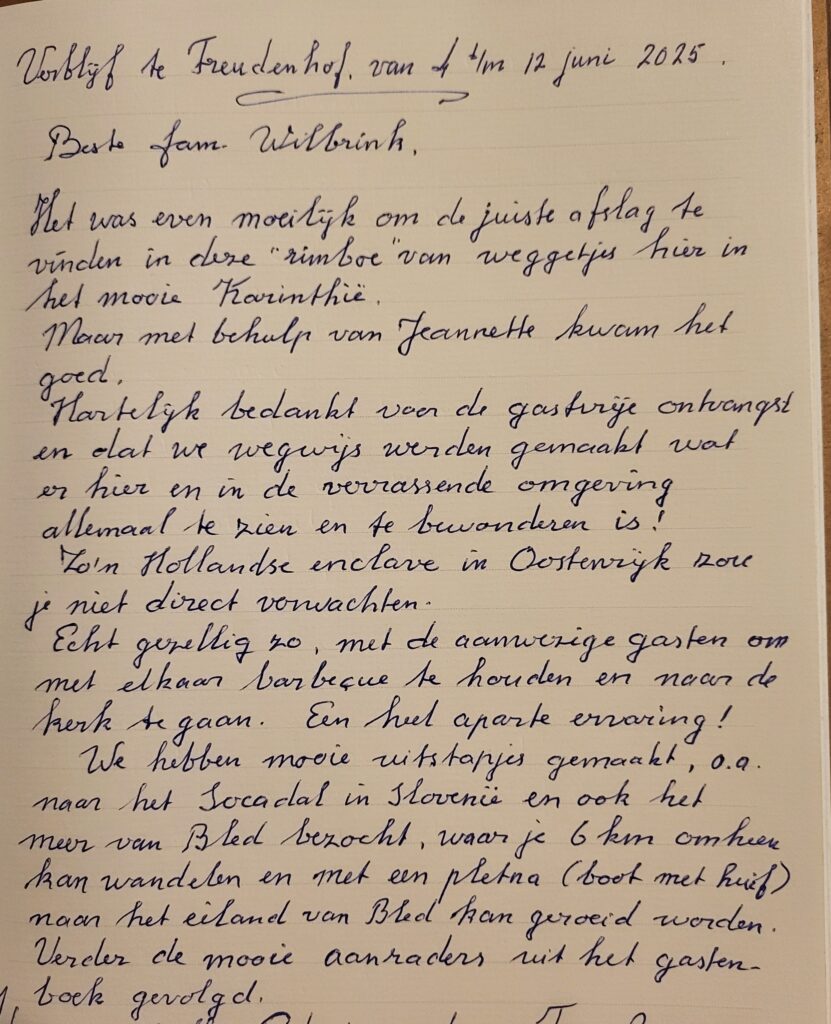 Verblijf te Freudenhof. van 4 t/m 12 juni 2025.
Beste fam. Wilbrink,
Het was even moeilijk om de juiste afslag te
vinden in deze "rimboe" van weggetjes hier in
het mooie Karinthië.
Maar met behulp van Jeannette kwam het
goed.
Hartelijk bedankt voor de gastvrije ontvangst
en dat we wegwijs werden gemaakt wat
er hier en in de verrassende omgeving
allemaal te zien en te bewonderen is!
Zo'n Hollandse enclave in Oostenrijk zou
je niet direct verwachten.
Echt gezellig zo, met de aanwezige gasten om
met elkaar barbeque te houden en naar de
kerk te gaan. Een heel aparte ervaring!
We hebben mooie uitstapjes gemaakt, o.a.
naar het Socadal in Slovenië en ook het
meer van Bled bezocht, waar je 6 km omheen
kan wandelen en met een pletna (boot met huif)
naar het eiland van Bled kan geroeid worden.
Verder de mooie aanraders uit het gasten-
boek gevolgd.